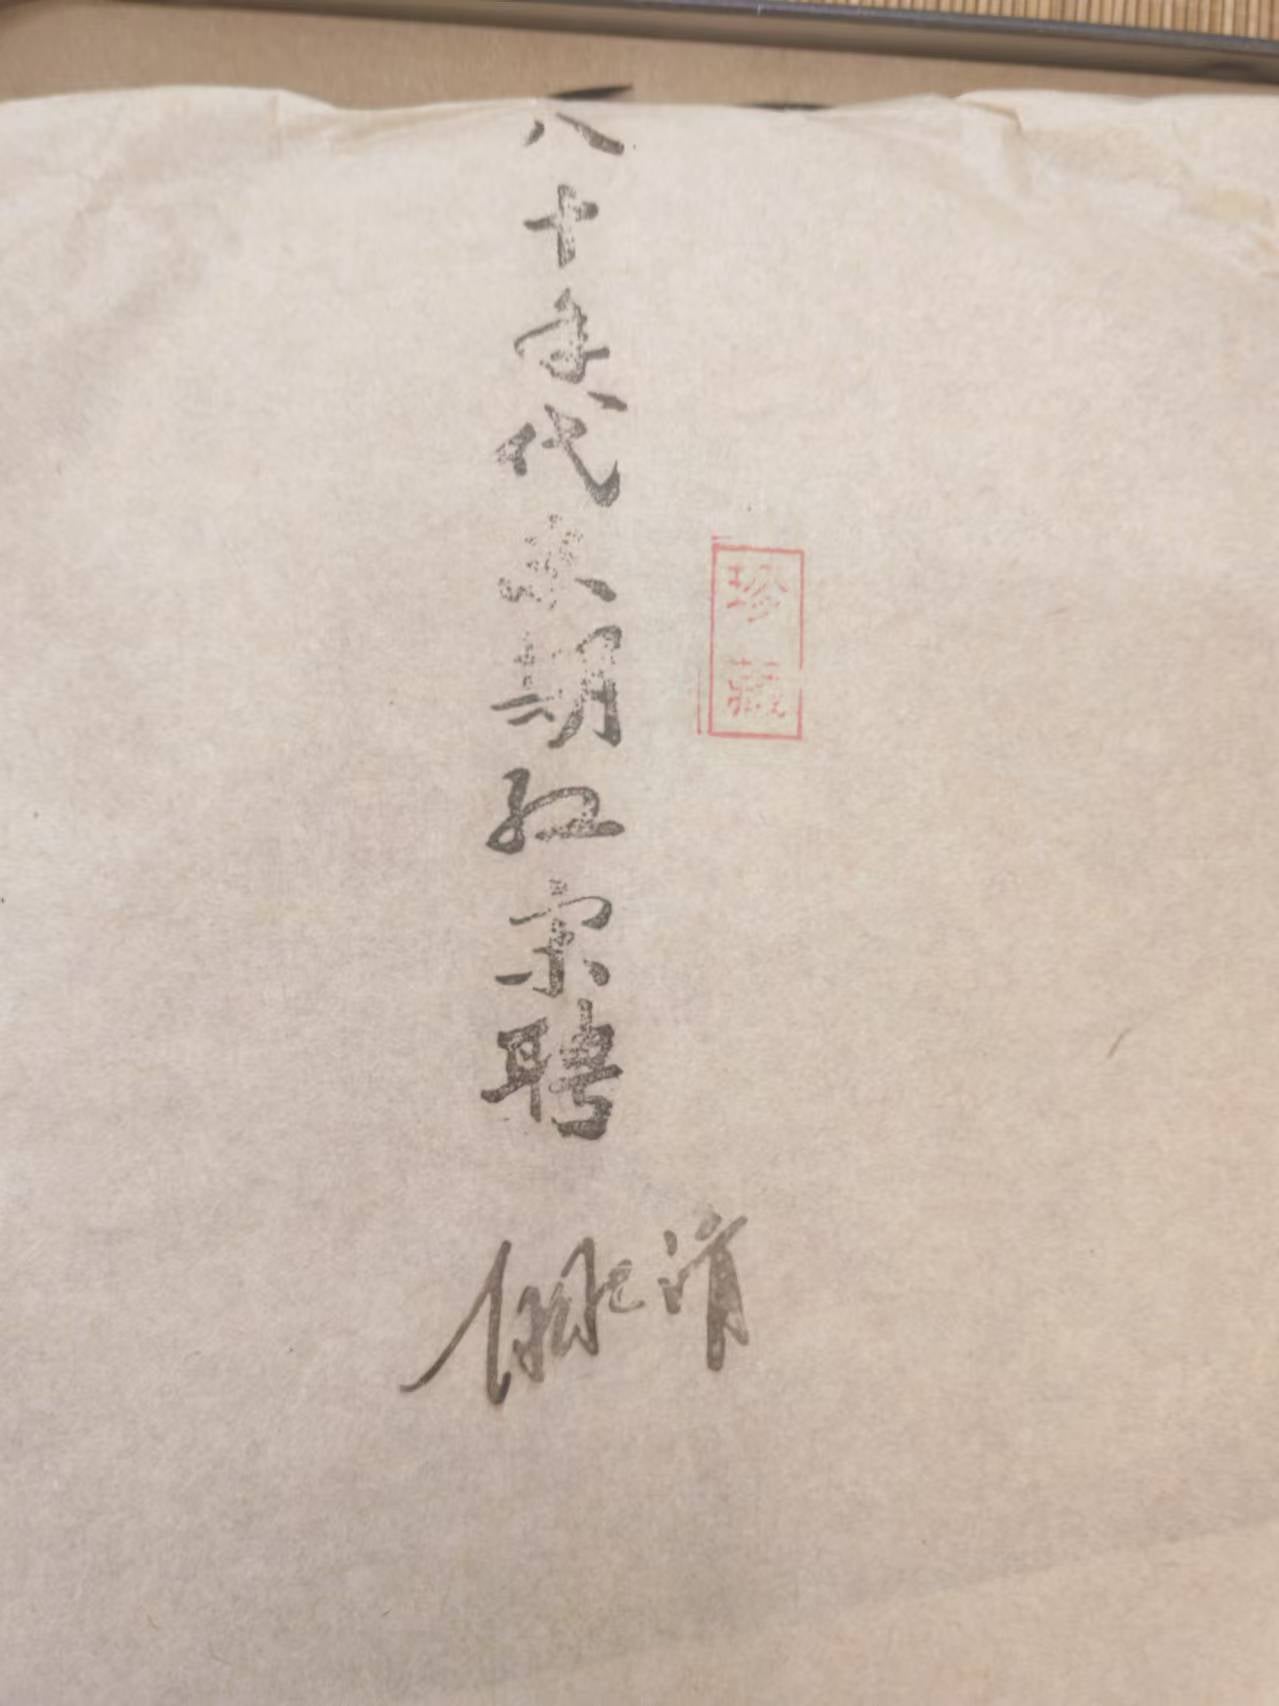 珍藏
八十年代末期红宗聘